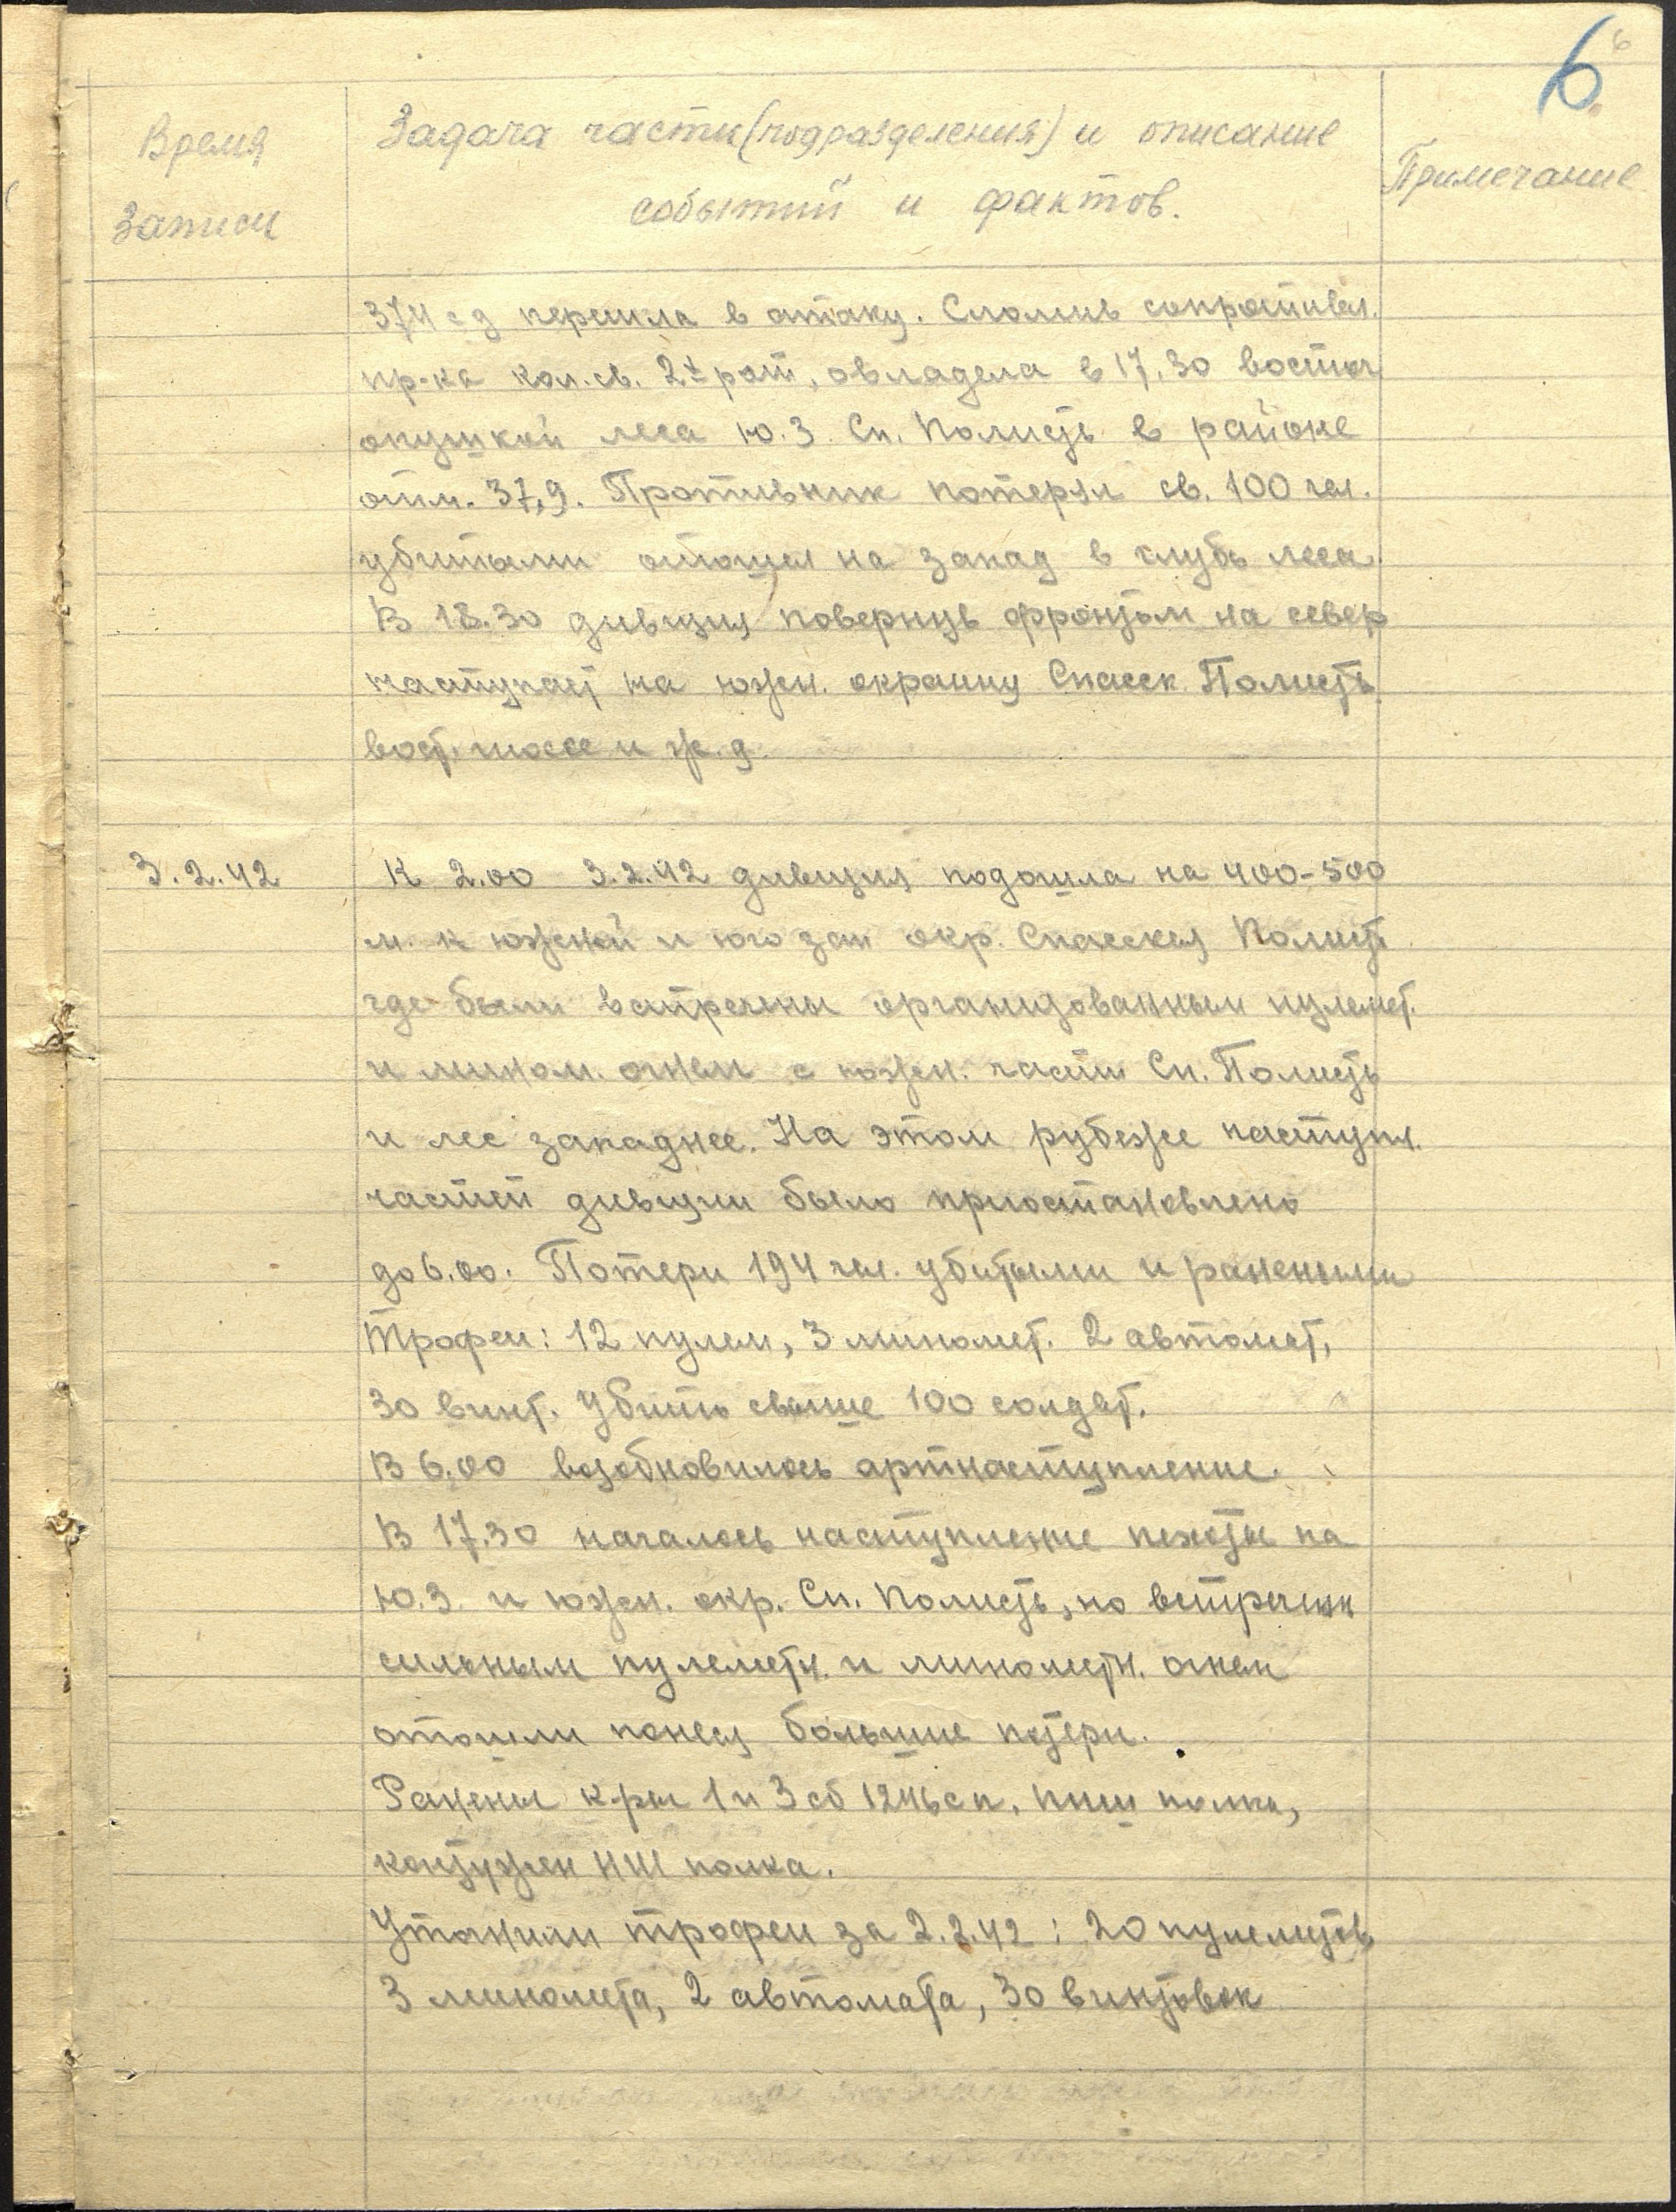 6
6
Время
Записи
Задача части (подразделения) и описание
событий и фактов.
Примечание
374 сд перешла в атаку. Сломив сопротивл.
пр-ка кол. св. 2х рот, овладела в 17.30 восточ
опушкой леса ю.з. Сп. Полисть в районе
отм. 37,9. Противник потеряв св. 100 чел.
убитыми отошел на запад в глубь леса.
В 18.30 дивизия повернув фронтом на север
наступает на южн. окраину Спасск. Полисть
вост. шоссе и ж.д.
3.2.42
К 2.00 3.2.42 дивизия подошла на 400-500
м. к южной и юго зап окр. Спасская Полисть
где были встречены организованным пулемет.
и мином. огнем с южн. части Сп. Полисть
и лес западнее. На этом рубеже наступл.
частей дивизии было приостановлено
до 6.00. Потери 194 чел. убитыми и ранеными
Трофеи: 12 пулем, 3 миномет. 2 автомат,
30 винт. Убито свыше 100 солдат.
В 6.00 возобновилось артнаступление.
В 17.30 началось наступление пехоты на
Ю.З. и южн. окр. Сп. Полисть, но встречены
сильным пулеметн. и минометн. огнем
отошли понеся большие потери.
Ранены к-ры 1 и 3 сб 1246 сп, пнш полка,
контужен НШ полка.
Уточнили трофеи за 2.2.42: 20 пулеметов,
3 миномета, 2 автомата, 30 винтовок